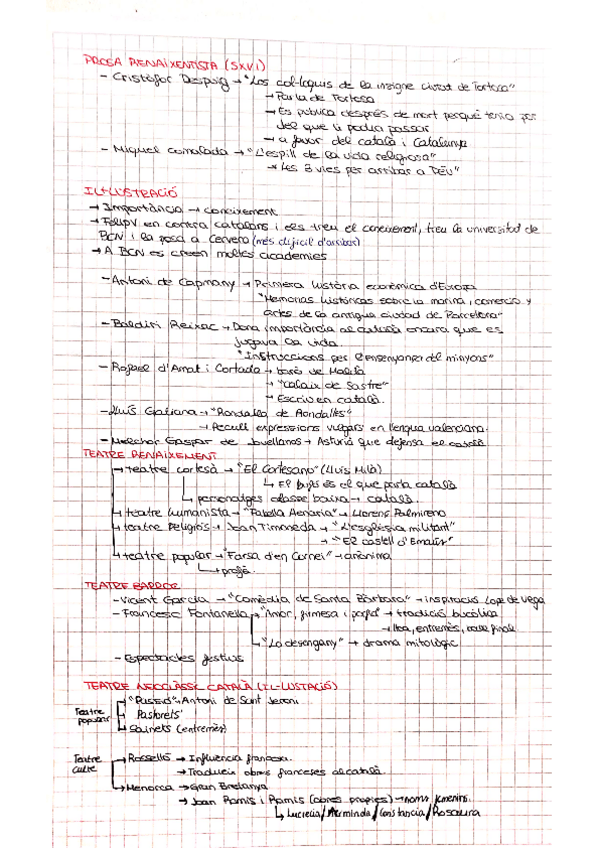 PROSA RENAIXENTISTA (S.XVI)
- Cristòfor Despuig → "Los col·loquis de la insigne ciutat de Tortosa"
→ Parla de Tortosa
→ Es publica després de mort perquè tenia por
del que li podria passar
→ a favor del català i Catalunya
- Miquel Comalada → "L'espill de la vida religiosa"
→ Les 3 vies per arribar a DÉU
IL·LUSTRACIÓ
→ Importància → coneixement
→ Felip V en contra catalans i els treu el coneixement, treu la universitat de
BCN i la posa a Cervera (més difícil d'arribar)
→ A BCN es creen moltes acadèmies
- Antoni de Capmany → Primera història econòmica d'Europa
"Memorias históricas sobre la marina, comercio y
artes de la antigua ciudad de Barcelona"
- Baldiri Reixac → Dona importància al català encara que es
jugava la vida.
"Instruccions per l'ensenyança del minyons"
- Rafael d'Amat i Cortada → baró de Maldà
→ "Calaix de Sastre"
→ Escriu en català.
- Lluís Galiana → "Rondalla de Rondalles"
→ Recull expressions vulgars en llengua valenciana.
- Melchor Gaspar de Jovellanos → Asturià que defensa el català
TEATRE RENAIXEMENT
→ teatre cortesà → "El Cortesano" (Lluís Milà)
↳ El bufó és el que parla català
↳ personatges classe baixa → català.
→ teatre humanista → "Fabella Aenaria" → Llorenç Palmireno
→ teatre Religiós → Joan Timoneda → "L'església militant"
→ "El castell d'Emaús"
→ teatre popular → "Farsa d'en Cornei" → anònima
↳ profà.
TEATRE BARROC
- Vicent Garcia → "Comèdia de Santa Bàrbara" → inspiració Lope de Vega
- Francesc Fontanella → "Amor, firmesa i porfia" → tradició bucòlica
→ lloa, entremès, final
↳ "Lo desengany" → drama mitològic
- Espectacles festius
TEATRE NEOCLÀSSIC CATALÀ (IL·LUSTACIÓ)
Teatre popular
→ "Passió" → Antoni de Sant Jeroni
→ Pastorets
→ Sainets (entremès)
Teatre culte
→ Rosselló → Influència francesa.
→ Tradueix obres franceses al català.
→ Menorca → Gran Bretanya
→ Joan Ramis i Ramis (obres pròpies) → noms femenins.
↳ Lucrècia / Arminda / Constància / Rosaura